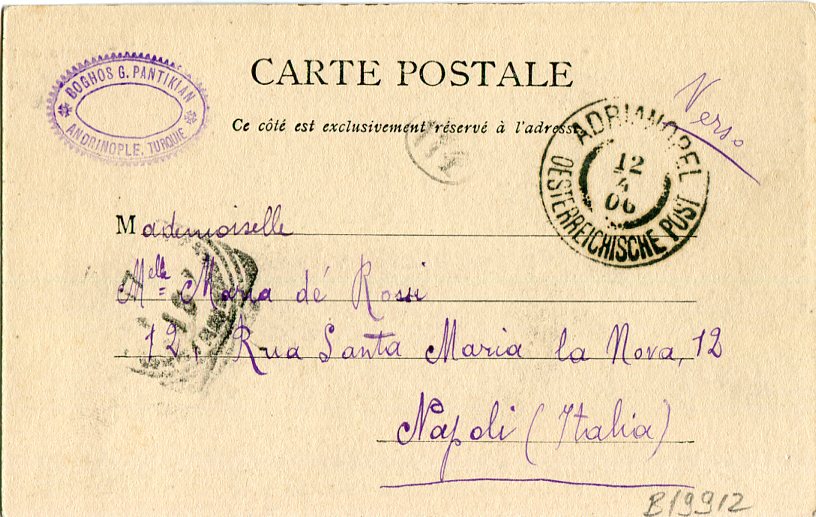 BOGHOS G. PANTIKIAN
ANDRINOPLE, TURQUIE
CARTE POSTALE
Ce côté est exclusivement réservé à l'adresse
Verso
ADRIANOPEL
12
4
06
OESTERREICHISCHE POST
Mademoiselle
Melle Maria dé Rossi
12, Rua Santa Maria la Nova, 12
Napoli (Italia)
B19912